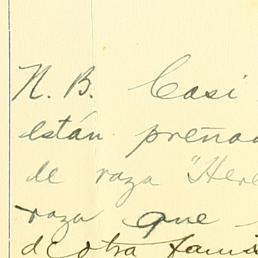 N. B. Casi
están preñad
de raza "Here
raza que
de otra fami